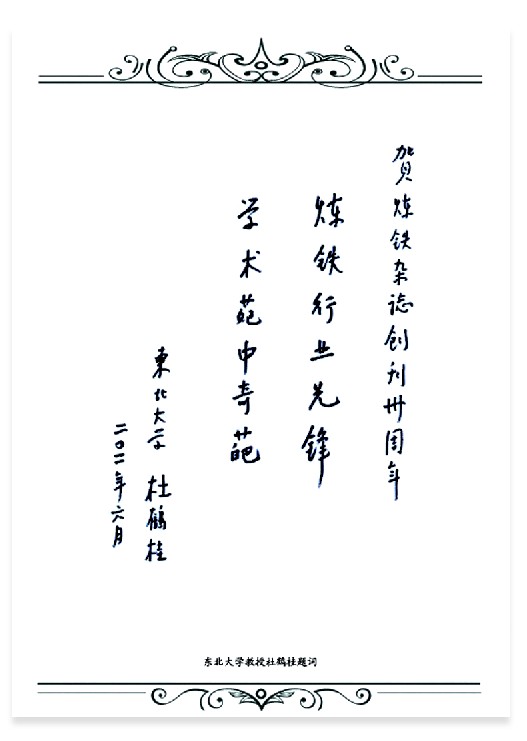 賀炼铁杂誌创刊卅周年
炼铁行业先锋
学术苑中奇葩
東北大学 杜鶴桂
二〇一一年六月
东北大学教授杜鹤桂题词